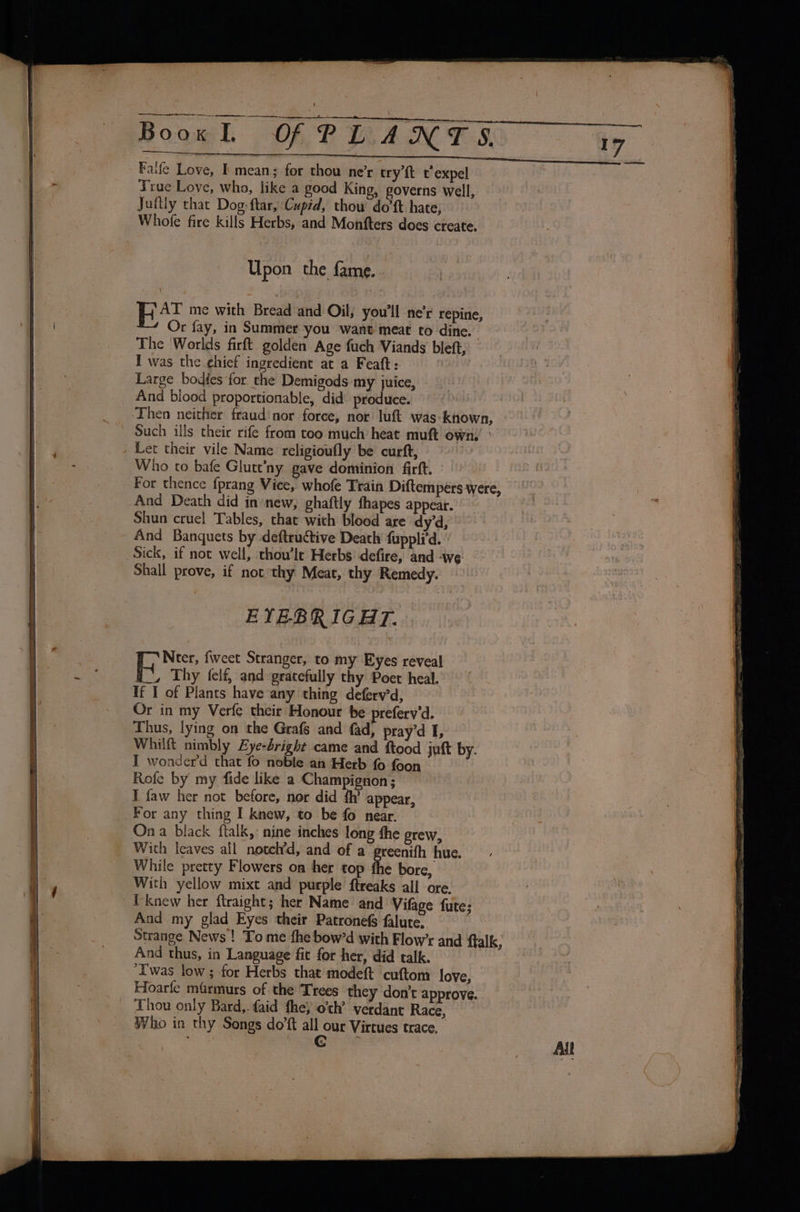 Book I. Of PLANTS. 17
Falſe Love, I mean; for thou ne'r try'ſt t'expel
True Love, who, like a good King, governs well,
Juſtly that Dog-ſtar, Cupid, thou do'ſt hate,
Whoſe fire kills Herbs, and Monſters does create.
Upon the ſame.
EAT me with Bread and Oil, you'll ne'r repine,
Or ſay, in Summer you want meat to dine.
The Worlds firſt golden Age ſuch Viands bleſt,
I was the chief ingredient at a Feaſt:
Large bodies for the Demigods my juice,
And blood proportionable, did produce.
Then neither fraud nor force, nor luſt was known,
Such ills their riſe from too much heat muſt own.
Let their vile Name religiouſly be curſt,
Who to baſe Glutt'ny gave dominion firſt.
For thence ſprang Vice, whoſe Train Diſtempers were,
And Death did in new, ghaſtly ſhapes appear.
Shun cruel Tables, that with blood are dy'd,
And Banquets by deſtructive Death ſuppli'd.
Sick, if not well, thou'lt Herbs deſire, and we
Shall prove, if not thy Meat, thy Remedy.
EYEBRIGHT.
ENter, ſweet Stranger, to my Eyes reveal
Thy ſelf, and gratefully thy Poet heal.
If I of Plants have any thing deſerv'd,
Or in my Verſe their Honour be preſerv'd.
Thus, lying on the Graſs and ſad, pray'd I,
Whilſt nimbly Eye-bright came and ſtood juſt by.
I wonder'd that ſo noble an Herb ſo ſoon
Roſe by my ſide like a Champignon;
I ſaw her not before, nor did ſh' appear,
For any thing I knew, to be ſo near.
On a black ſtalk, nine inches long ſhe grew,
With leaves all notch'd, and of a greeniſh hue.
While pretty Flowers on her top ſhe bore,
With yellow mixt and purple ſtreaks all ore.
I knew her ſtraight; her Name and Viſage ſute;
And my glad Eyes their Patroneſs ſalute.
Strange News! To me ſhe bow'd with Flow'r and ſtalk,
And thus, in Language fit for her, did talk.
'Twas low; for Herbs that modeſt cuſtom love,
Hoarſe murmurs of the Trees they don't approve.
Thou only Bard, ſaid ſhe, o'th' verdant Race,
Who in thy Songs do'ſt all our Virtues trace.
C All